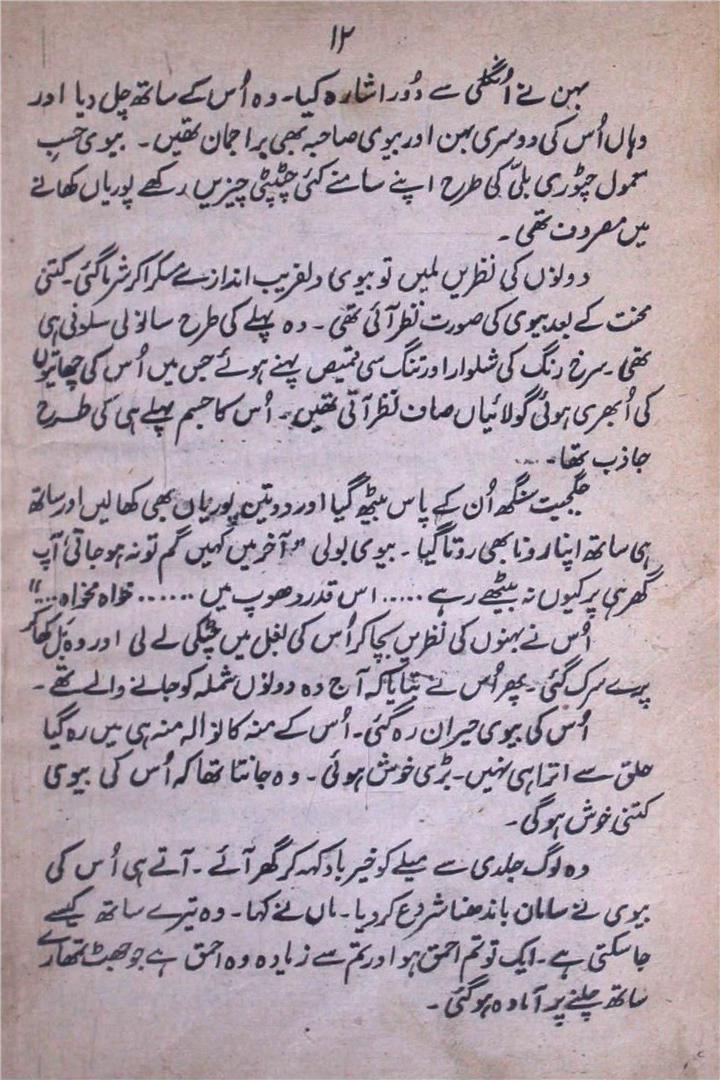 ۱۲
بہن نے اُنگلی سے دُور اشارہ کیا۔ وہ اُس کے ساتھ چل دیا اور
وہاں اُس کی دوسری بہن اور بیوی صاحبہ بھی براجمان تھیں۔ بیوی حسبِ
معمول چٹوری بلیّ کی طرح اپنے سامنے کئی چٹپٹی چیزیں رکھے پوریاں کھانے
میں مصروف تھی۔
دونوں کی نظریں ملیں تو بیوی دلفریب انداز سے مسکرا کر شرما گئی۔ کتنی
محنت کے بعد بیوی کی صورت نظر آئی تھی۔ وہ پہلے کی طرح سانولی سلونی ہی
تھی۔ سرخ رنگ کی شلوار اور تنگ سی قمیص پہنے ہوئے جس میں اُس کی چھاتیوں
کی اُبھری ہوئی گولائیاں صاف نظر آتی تھیں۔ اُس کا جسم پہلے ہی کی طرح
جاذب تھا۔...
جگجیت سنگھ اُن کے پاس بیٹھ گیا اور دو تین پوریاں بھی کھا لیں اور ساتھ
ہی ساتھ اپنا رونا بھی روتا گیا۔ بیوی بولی "آخر میں کہیں گم تو نہ ہو جاتی آپ
گھر ہی پر کیوں نہ بیٹھے رہے ..... اس قدر دھوپ میں ...... خواہ مخواہ..."
اُس نے بہنوں کی نظریں بچا کر اُس کی بغل میں چٹکی لے لی اور وہ بَل کھا کر
پرے سرک گئی۔ پھر اُس نے بتایا کہ آج وہ دونوں شملہ کو جانے والے تھے۔
اُس کی بیوی حیران رہ گئی۔ اُس کے منہ کا نوالہ منہ ہی میں رہ گیا
حلق سے اترا ہی نہیں۔ بڑی خوش ہوئی۔ وہ جانتا تھا کہ اُس کی بیوی
کتنی خوش ہو گی۔
وہ لوگ جلدی سے میلے کو خیر باد کہہ کر گھر آئے۔ آتے ہی اُس کی
بیوی نے سامان باندھنا شروع کر دیا۔ ماں نے کہا۔ وہ تیرے ساتھ کیسے
جا سکتی ہے۔ ایک تو تم احمق ہو اور تم سے زیادہ وہ احمق ہے جو جھٹ تمھارے
ساتھ چلنے پر آمادہ ہو گئی۔